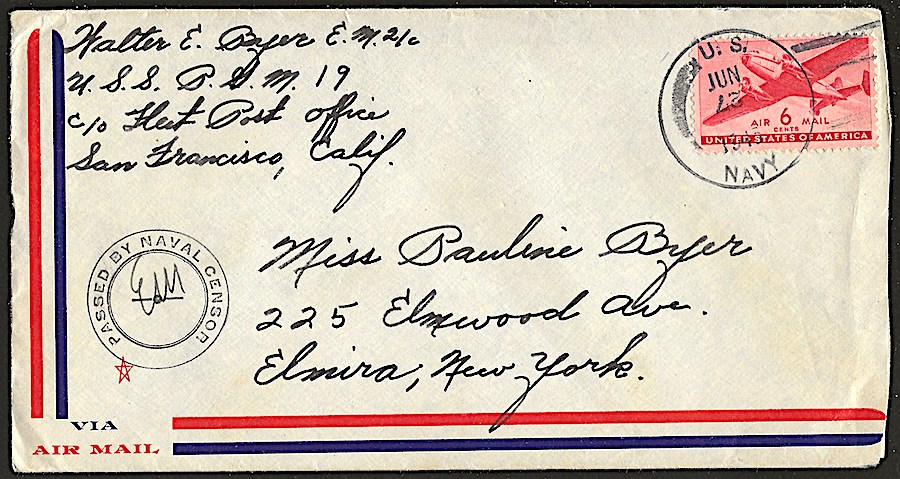 Walter E. Byer E.M. 2/c
U.S.S. P.G.M. 19
c/o Fleet Post Office
San Francisco, Calif.
U. S.
JUN
23
NAVY
AIR 6 MAIL
CENTS
UNITED STATES OF AMERICA
PASSED BY NAVAL CENSOR
Miss Pauline Byer
225 Elmwood Ave.
Elmira, New York.
VIA
AIR MAIL